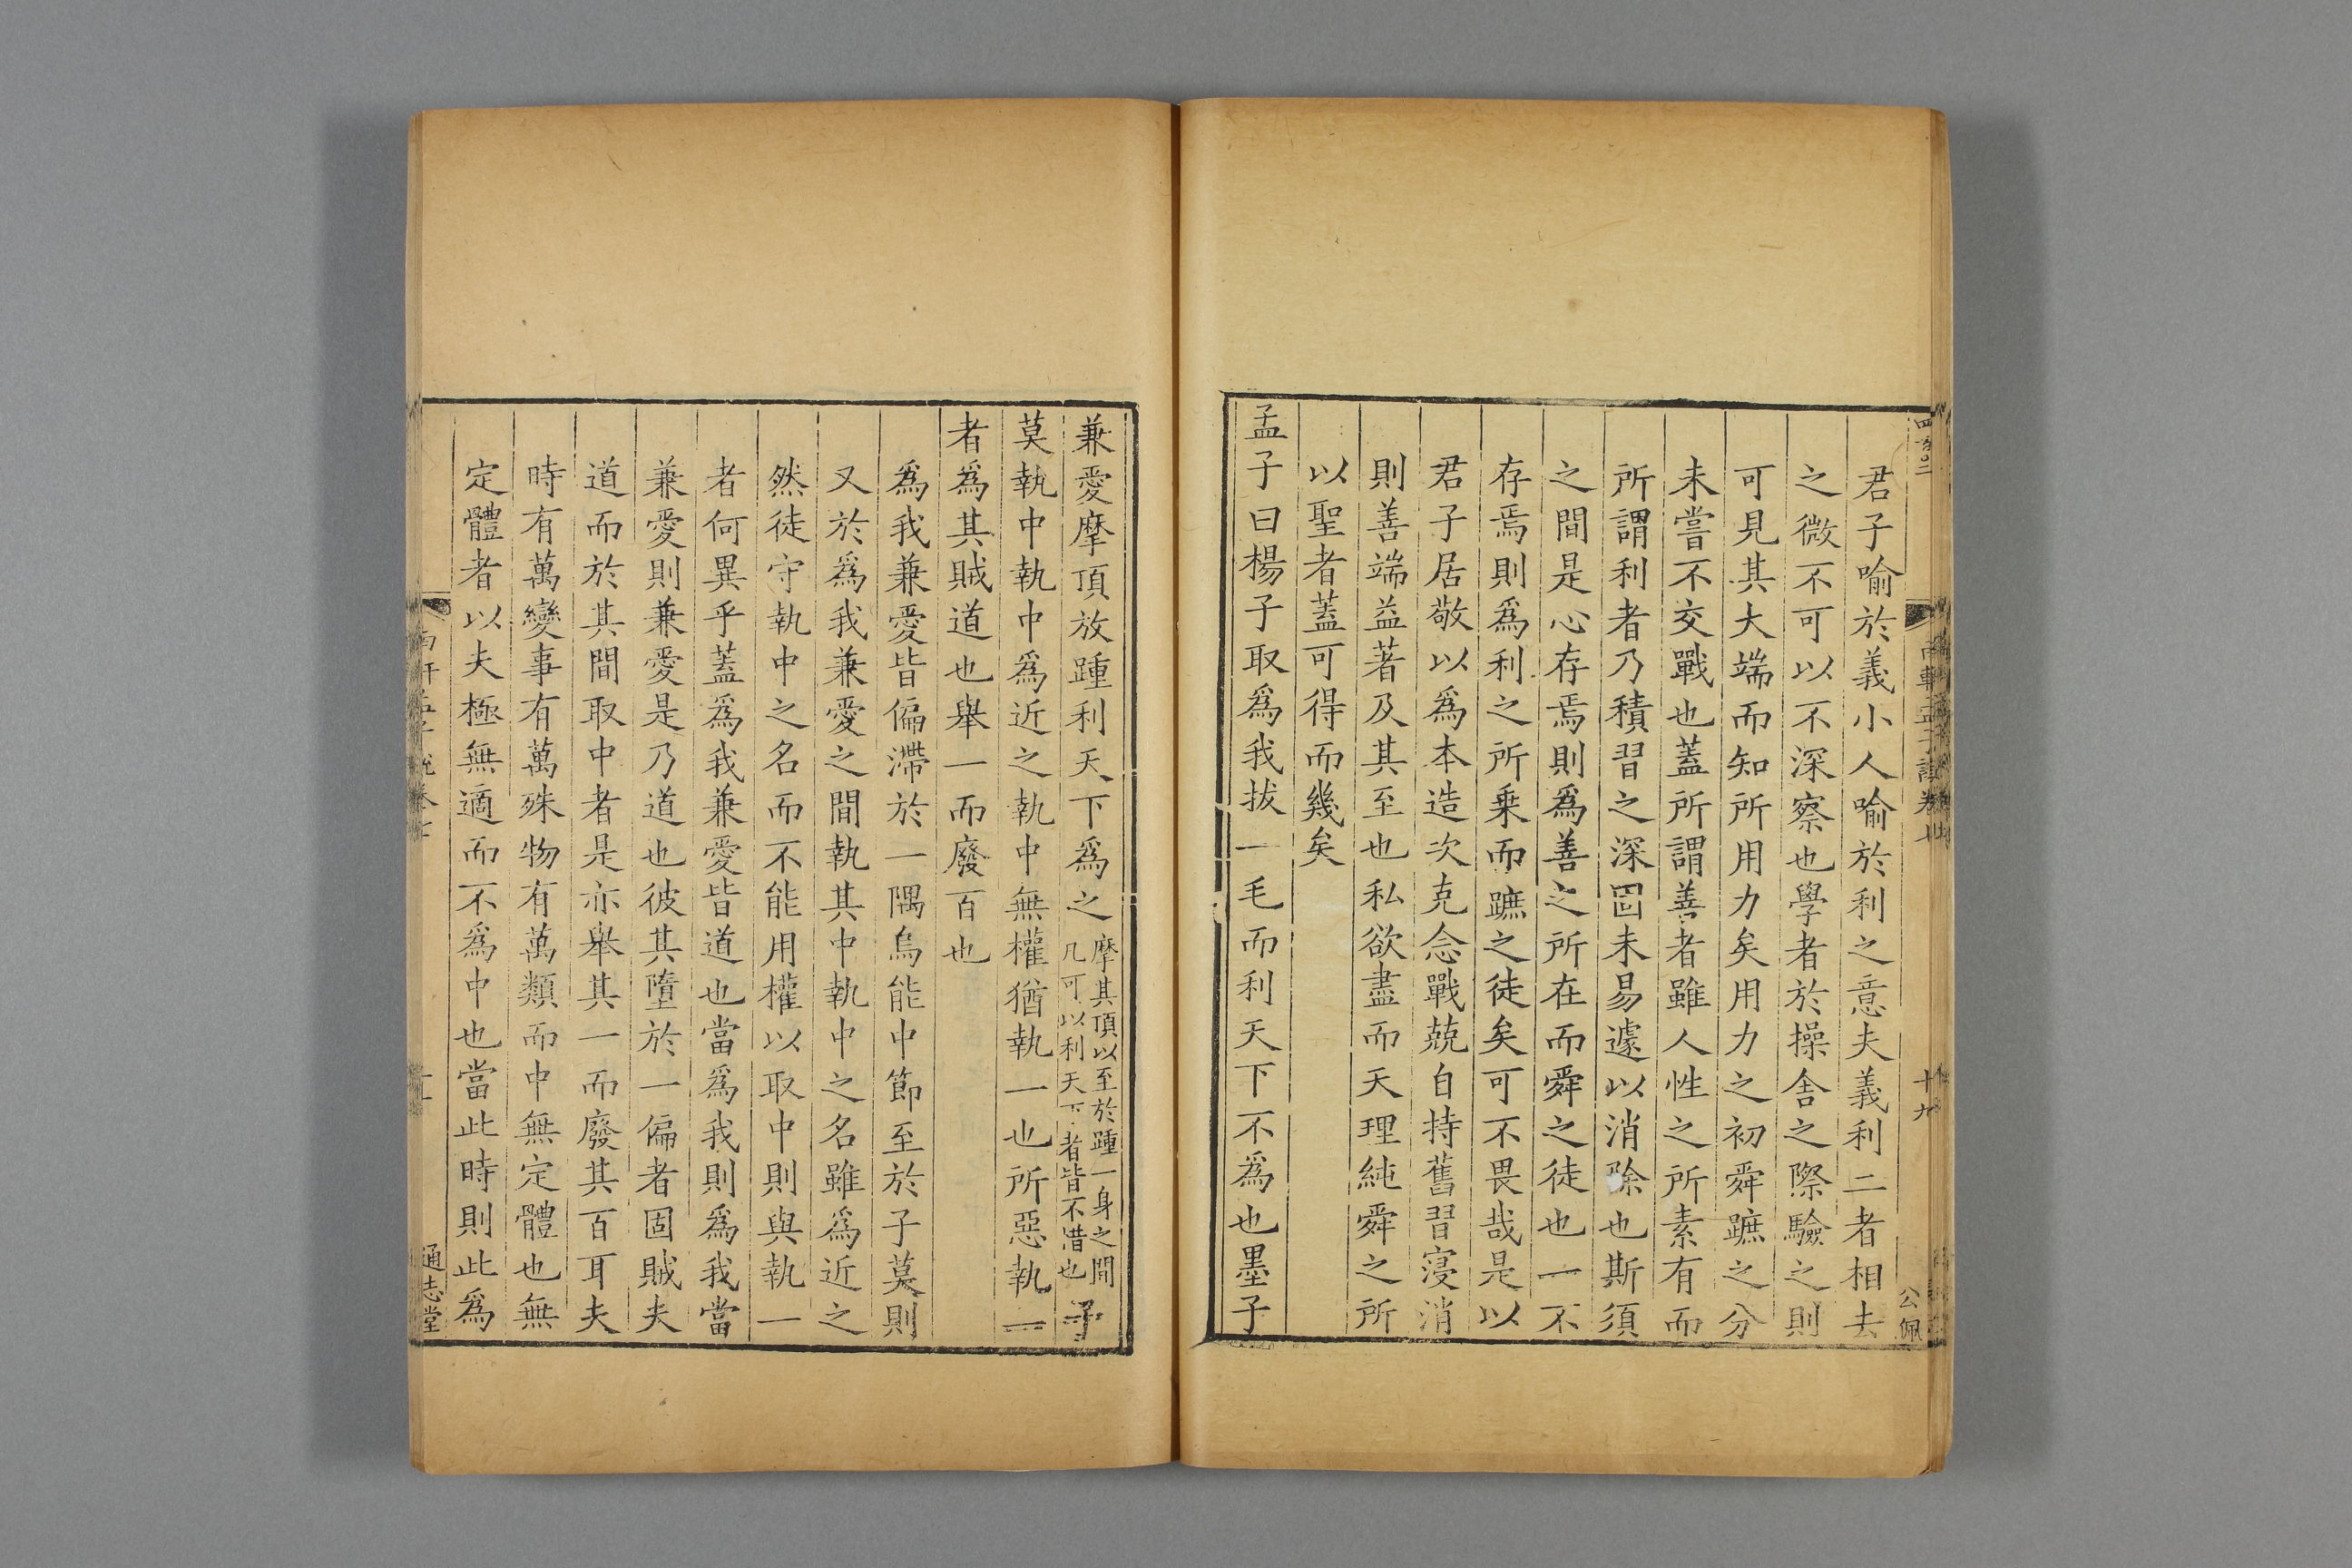 君子喻於義小人喻於利之意夫義利二者相去
之微不可以不深察也學者於操舍之際驗之則
可見其大端而知所用力矣用力之初舜蹠之分
未嘗不交戰也蓋所謂善者雖人性之所素有而
所謂利者乃積習之深固未易遽以消除也斯須
之間是心存焉則為善之所在而舜之徒也一不
存焉則為利之所乗而蹠之徒矣可不畏哉是以
君子居敬以為本造次克念戰兢自持舊習寖消
則善端益著及其至也私欲盡而天理純舜之所
以聖者蓋可得而幾矣
孟子曰楊子取爲我拔一毛而利天下不為也墨子
十九
公佩
兼愛摩頂放踵利天下爲之摩其頂以至於踵一身之間
几可以利天下者皆不惜也子
莫執中執中爲近之執中無權猶執一也所惡執一
者爲其賊道也舉一而廢百也
爲我兼愛皆偏滯於一隅烏能中節至於子莫則
又於爲我兼愛之間執其中執中之名雖爲近之
然徒守執中之名而不能用權以取中則與執一
者何異乎蓋爲我兼愛皆道也當爲我則爲我當
兼愛則兼愛是乃道也彼其墮於一偏者固賊夫
道而於其間取中者是亦舉其一而廢其百耳夫
時有萬變事有萬殊物有萬類而中無定體也無
定體者以夫極無適而不爲中也當此時則此爲
通志堂